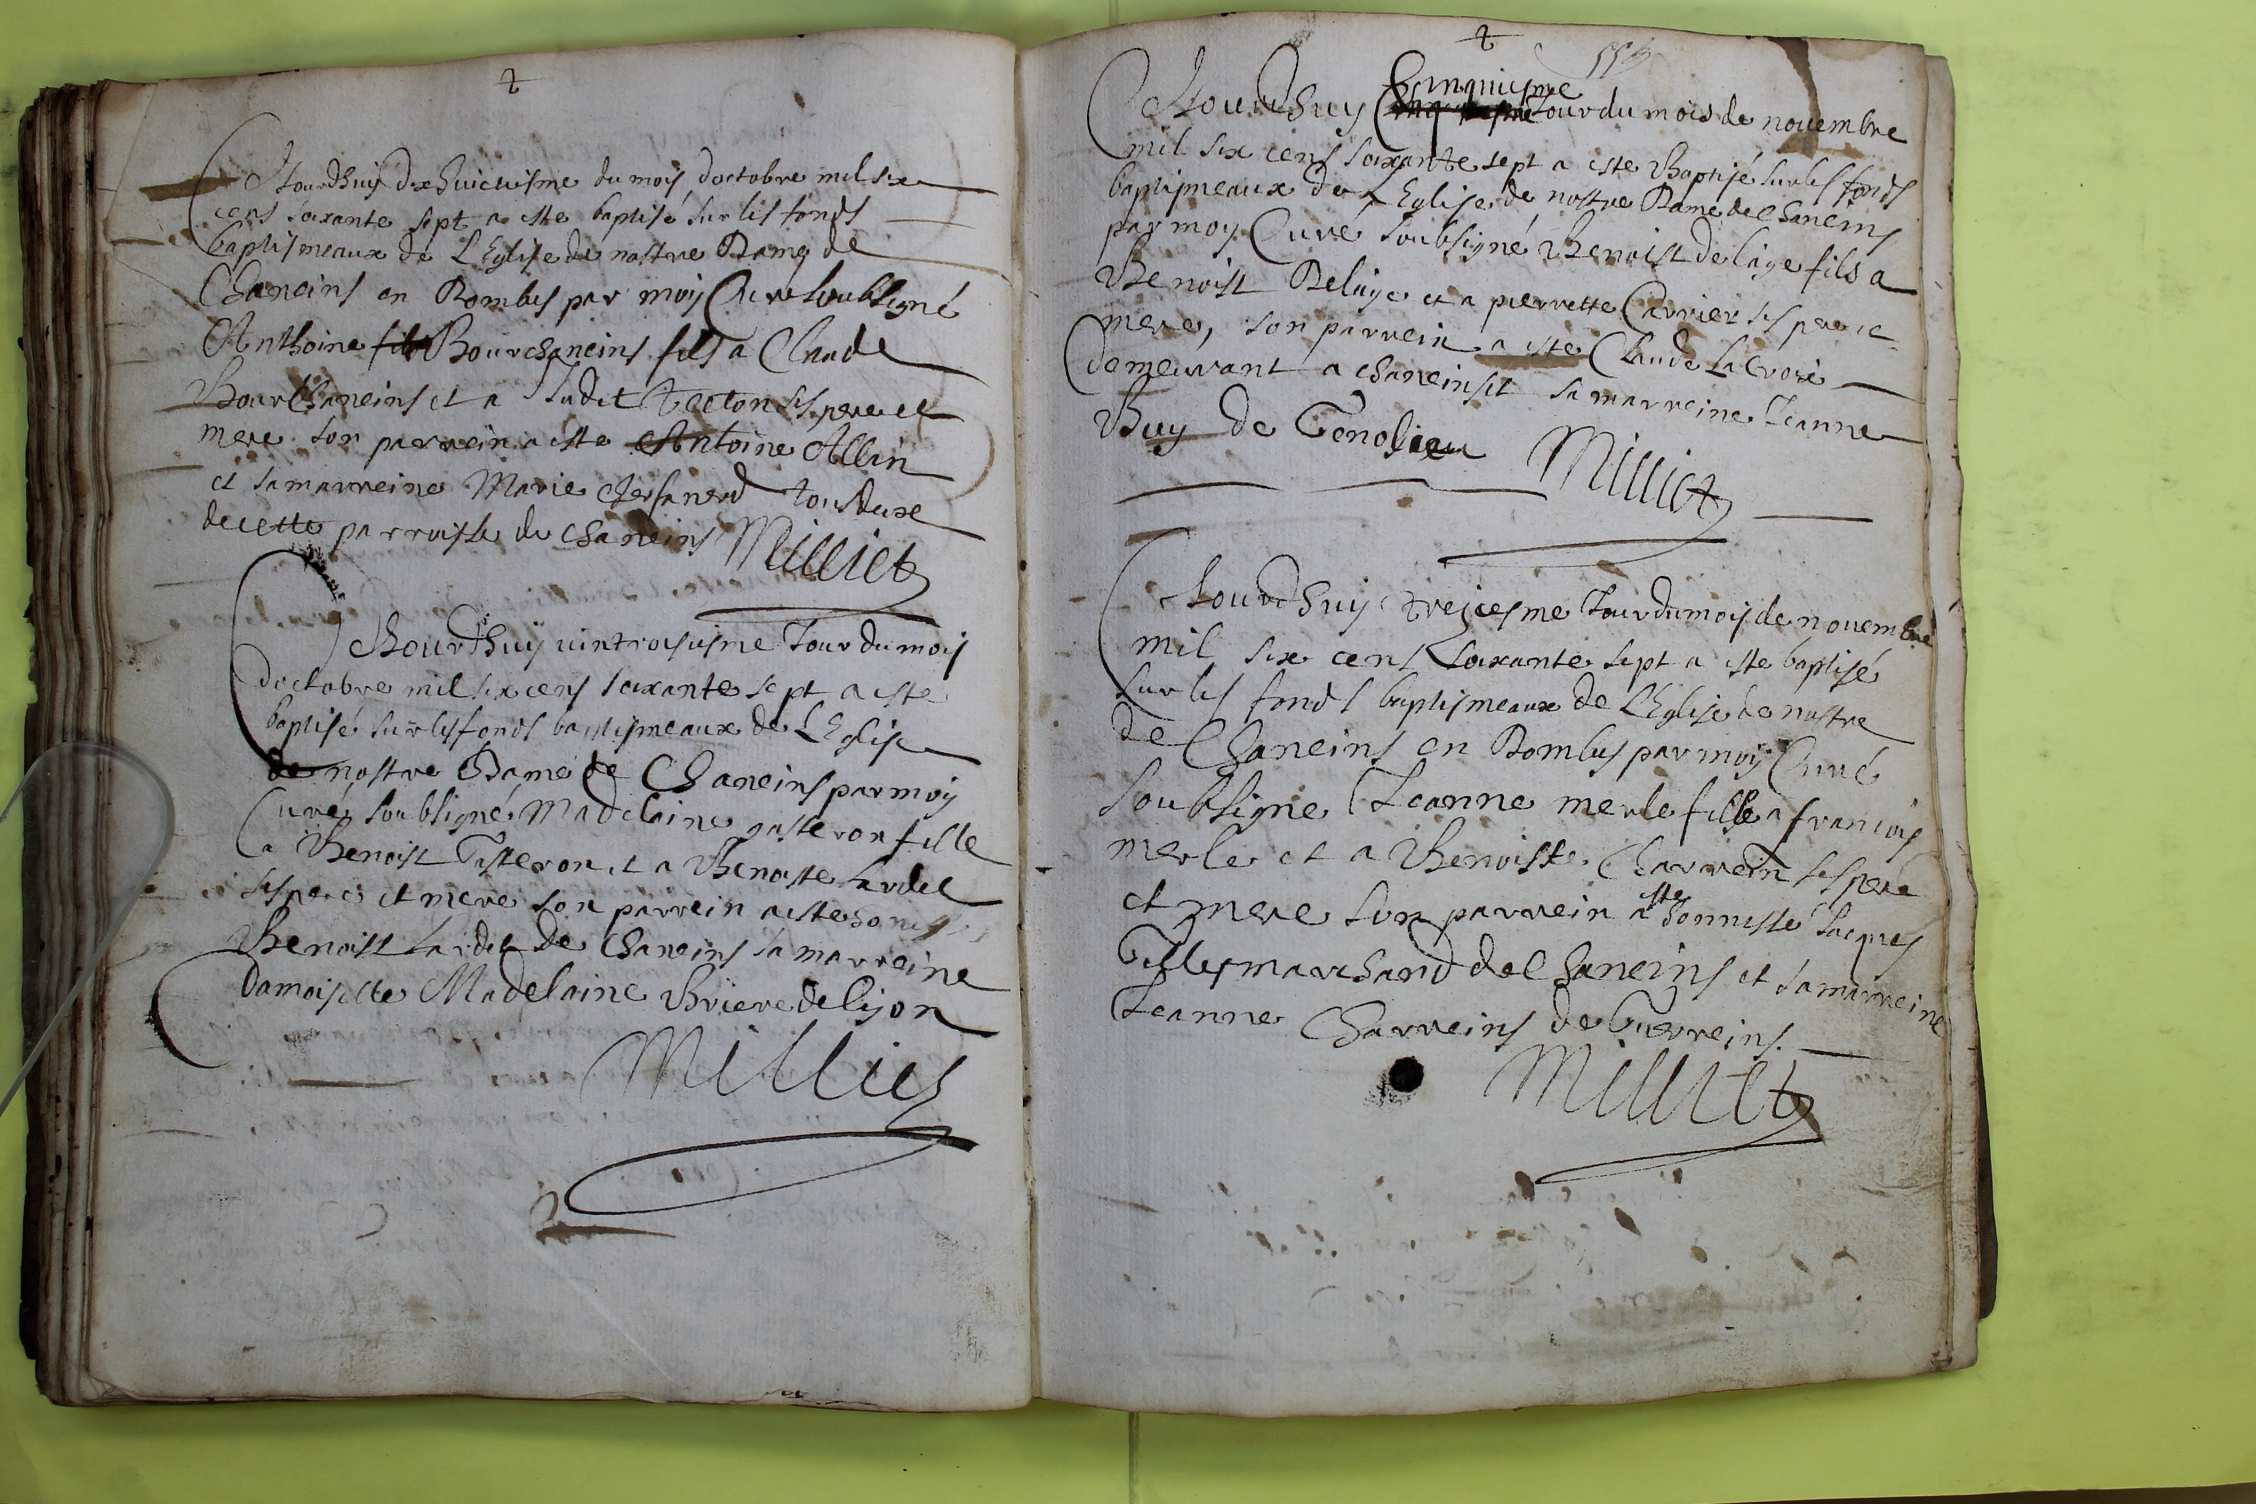 Aiourdhuy dixhuictiesme du mois doctobre mil six
cens soixante sept a este baptisé sur les fonds
baptismeaux de L'Eglise de nostre Dame de
Chaneins en Dombes par moy Curé soubsigné
Anthoine fils Bourchaneins fils a Claude
Bourchaneins et a Judit tecton ses pere et
mere son parrein a este Antoine Allin
et sa marreine Marie tous deux
de cette parroisse de Chaneins Milliet
Aiourdhuy vintroisiesme Jour du mois
doctobre mil six cens soixante sept a este
baptisé sur les fonds baptismeaux de L'Eglise
de nostre Dame de Chaneins par moy
Curé soubsigné Madelaine gasteron fille
a Benoist Gasteron et a Benoiste Lardet
ses pere et mere son parrein a este
Benoist Lardet de Chaneins sa marreine
damoiselle Madelaine Briere de lyon
Milliet
Aiourdhuy Cinquiesme Jour du mois de novembre
mil six cens soixante sept a este Baptisé sur les fonds
baptismeaux de L'Eglise de nostre Dame de Chaneins
par moy Curé soubsigné Benoist Delaye fils a
Benoist Delaye et a pierrette Carrier ses pere et
mere, son parrein a este Claude Lacroix
demeurant a Chaneins et sa marreine Jeanne
Buy de
Milliet
Aiourdhuy treziesme Jour du mois de novembre
mil six cens soixante sept a este baptisé
sur les fonds baptismeaux de L'Eglise de nostre
de Chaneins en Dombes par moy Curé
soubsigne Jeanne merle fille a francois
merle et a Benoiste Charrein ses pere
et mere son parrein a este honneste Jacques
Gilles marchand de Chaneins et sa marreine
Jeanne Charreins de Guerreins.
Milliet